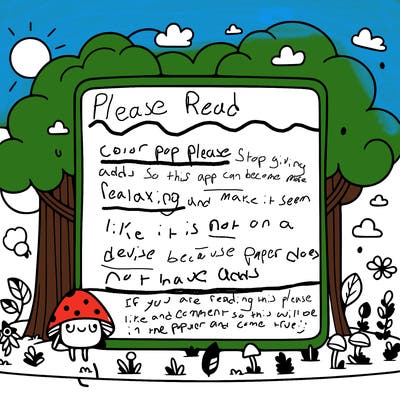 Please Read
Color pop please Stop giving
adds So this app can become more
fealaxing and make it seem
like it is not on a
devise because paper does
not have adds
If you are reading this please
like and comment so this will be
in the popuer and come true!: